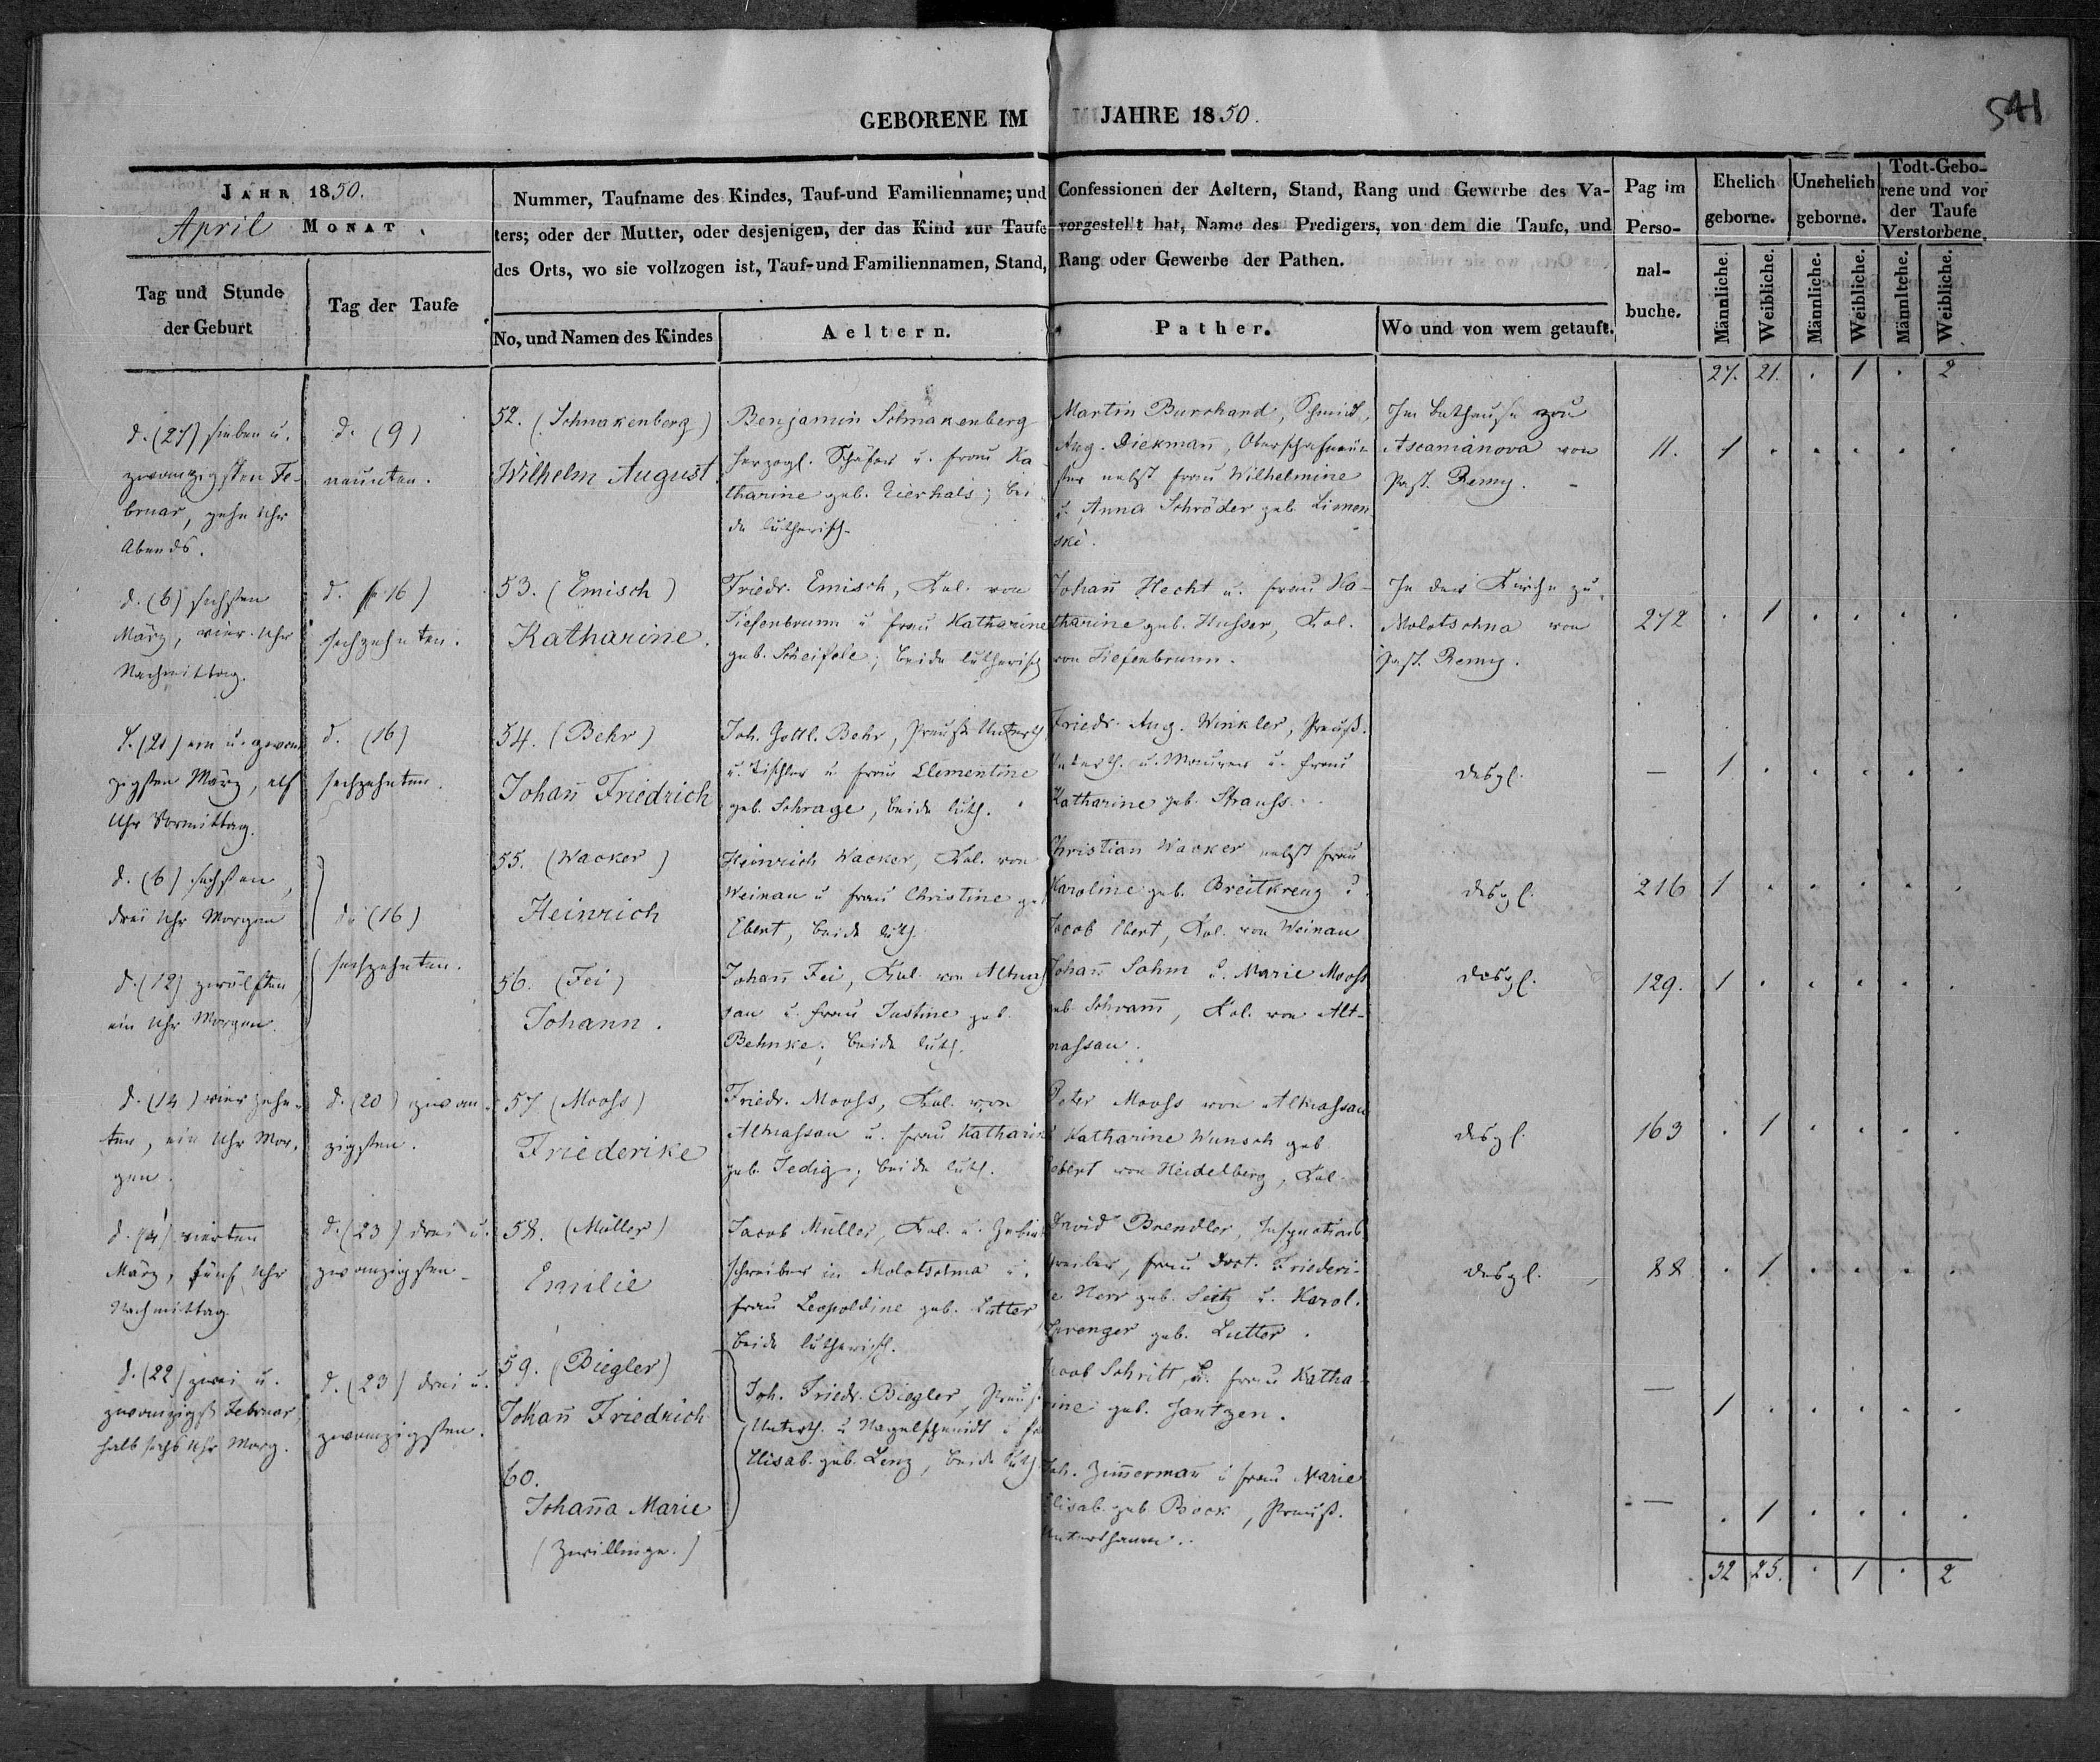 541
GEBORENE IM JAHRE 1850.
JAHR 1850.
April MONAT.
Tag und Stunde
der Geburt
Tag der Taufe
Nummer, Taufname des Kindes, Tauf-und Familienname; und Confessionen der Aeltern, Stand, Rang und Gewerbe des Va-
ters; oder der Mutter, oder desjenigen, der das Kind zur Taufe vorgestel't hat, Name des Predigers, von dem die Taufe, und
des Orts, wo sie vollzogen ist, Tauf-und Familiennamen, Stand, Rang oder Gewerbe der Pathen.
No, und Namen des Kindes
Aeltern.
Pather.
Wo und von wem getauft.
Pag im
Perso-
nal-
buche.
Ehelich
geborne.
Unehelich
geborne.
Todt-Gebo-
rene und vor
der Taufe
Verstorbene.
Männliche. Weibliche. Männliche. Weibliche. Männliche. Weibliche.
27. 21. . 1 . 2
d. (27) sieben u.
zwanzigsten Fe-
bruar, zehn Uhr
Abends.
d. (9)
neunten.
52. (Schnakenberg)
Wilhelm August
Benjamin Schnakenberg
herzogl. Schäfer u. Frau Ka-
tharine geb. Eierhals; bei-
de lutherisch.
Martin Burchard, Schmidt,
Aug. Diekmañ,
nebst Frau Wilhelmine
u. Anna Schröder geb. Limon
ski.
Im Bethause zu
Ascanianova von
Past. Remy.
11. 1 . . . . .
d. (6) sechsten
März, vier Uhr
Nachmittag.
d. (16)
sechzehnten.
53. (Emisch)
Katharine.
Friedr. Emisch, Kol. von
Tiefenbrunn u. Frau Katharine
geb. Scheifele; beide lutherisch
Johañ Hecht u. Frau Ka-
tharine geb. Husser, Kol.
von Tiefenbrunn.
In der Kirche zu
Molotschna von
Past. Remy.
272 . 1 . . . .
d. (21) ein u. zwan
zigsten März, elf
Uhr Vormittag.
d. (16)
sechzehnten.
54. (Behr)
Johañ Friedrich
Joh. Gottl. Behr, Preuß. Unterth.
u. Tischler u. Frau Clementine
geb. Schrage, beide luth.
Friedr. Aug. Winkler, Preuß.
Unterth. u. Maurer u. Frau
Katharine geb. Strauss.
desgl.
— 1 . . . . .
d. (6) sechsten,
drei Uhr Morgen
d. (16)
sechzehnten.
55. (Wacker)
Heinrich
Heinrich Wacker, Kol. von
Weinau u. Frau Christine ge
Ebert, beide luth.
Christian Wacker nebst Frau
Karoline geb. Breitkreuz u.
Jacob Ebert, Kol. von Weinau
desgl.
216 1 . . . . .
d. (12) zwölften
ein Uhr Morgen.
56. (Fei)
Johann.
Johañ Fei, Kol. von Altnas
sau u. Frau Justine geb.
Behnke; beide luth.
Johañ Sohm u. Marie Mooss
geb. Schram̄, Kol. von Alt-
nassau.
desgl.
129. 1 . . . . .
d. (14) vierzehn-
ten, ein Uhr Mor-
gen.
d. (20) zwan-
zigsten.
57 (Mooss)
Friederike
Friedr. Mooss, Kol. von
Altnassau u. Frau Katharine
geb. Jedig; beide luth.
Peter Mooss von Altnassau
Katharine Wunsch geb
Ebert von Heidelberg, Kol.
desgl.
163 . 1 . . . .
d. (4) vierten
März, fünf Uhr
Nachmittag.
d. (23) drei u.
zwanzigsten
58. (Müller)
Emilie
Jacob Müller, Kol. u. Gebiets
schreiber in Molotschna u.
Frau Leopoldine geb. Lutter
beide lutherisch.
David Brendler,
schreiber, Frau Doct. Friederi-
e Herr geb. Seitz u. Karol.
Sprenger geb. Lutter.
desgl.
88 . 1 . . . .
d. (22) zwei u.
zwanzigst. Februar,
halb sechs Uhr Morg.
d. (23) drei u.
zwanzigsten.
59. (Biegler)
Johañ Friedrich
Joh. Friedr. Biegler, Preuß.
Unterth. u Nagelschmidt u Fr
Elisab. geb. Lenz, beide luth.
Jacob Schritt, u. Frau Katha-
rine geb. Jantzen.
— 1 . . . . .
60.
Johaña Marie
(Zwillinge.)
Joh. Zim̄ermañ u Frau Marie
Elisab. geb Bock, Preuß.
Unterthanen.
— . 1 . . . .
32 25. . 1 . 2